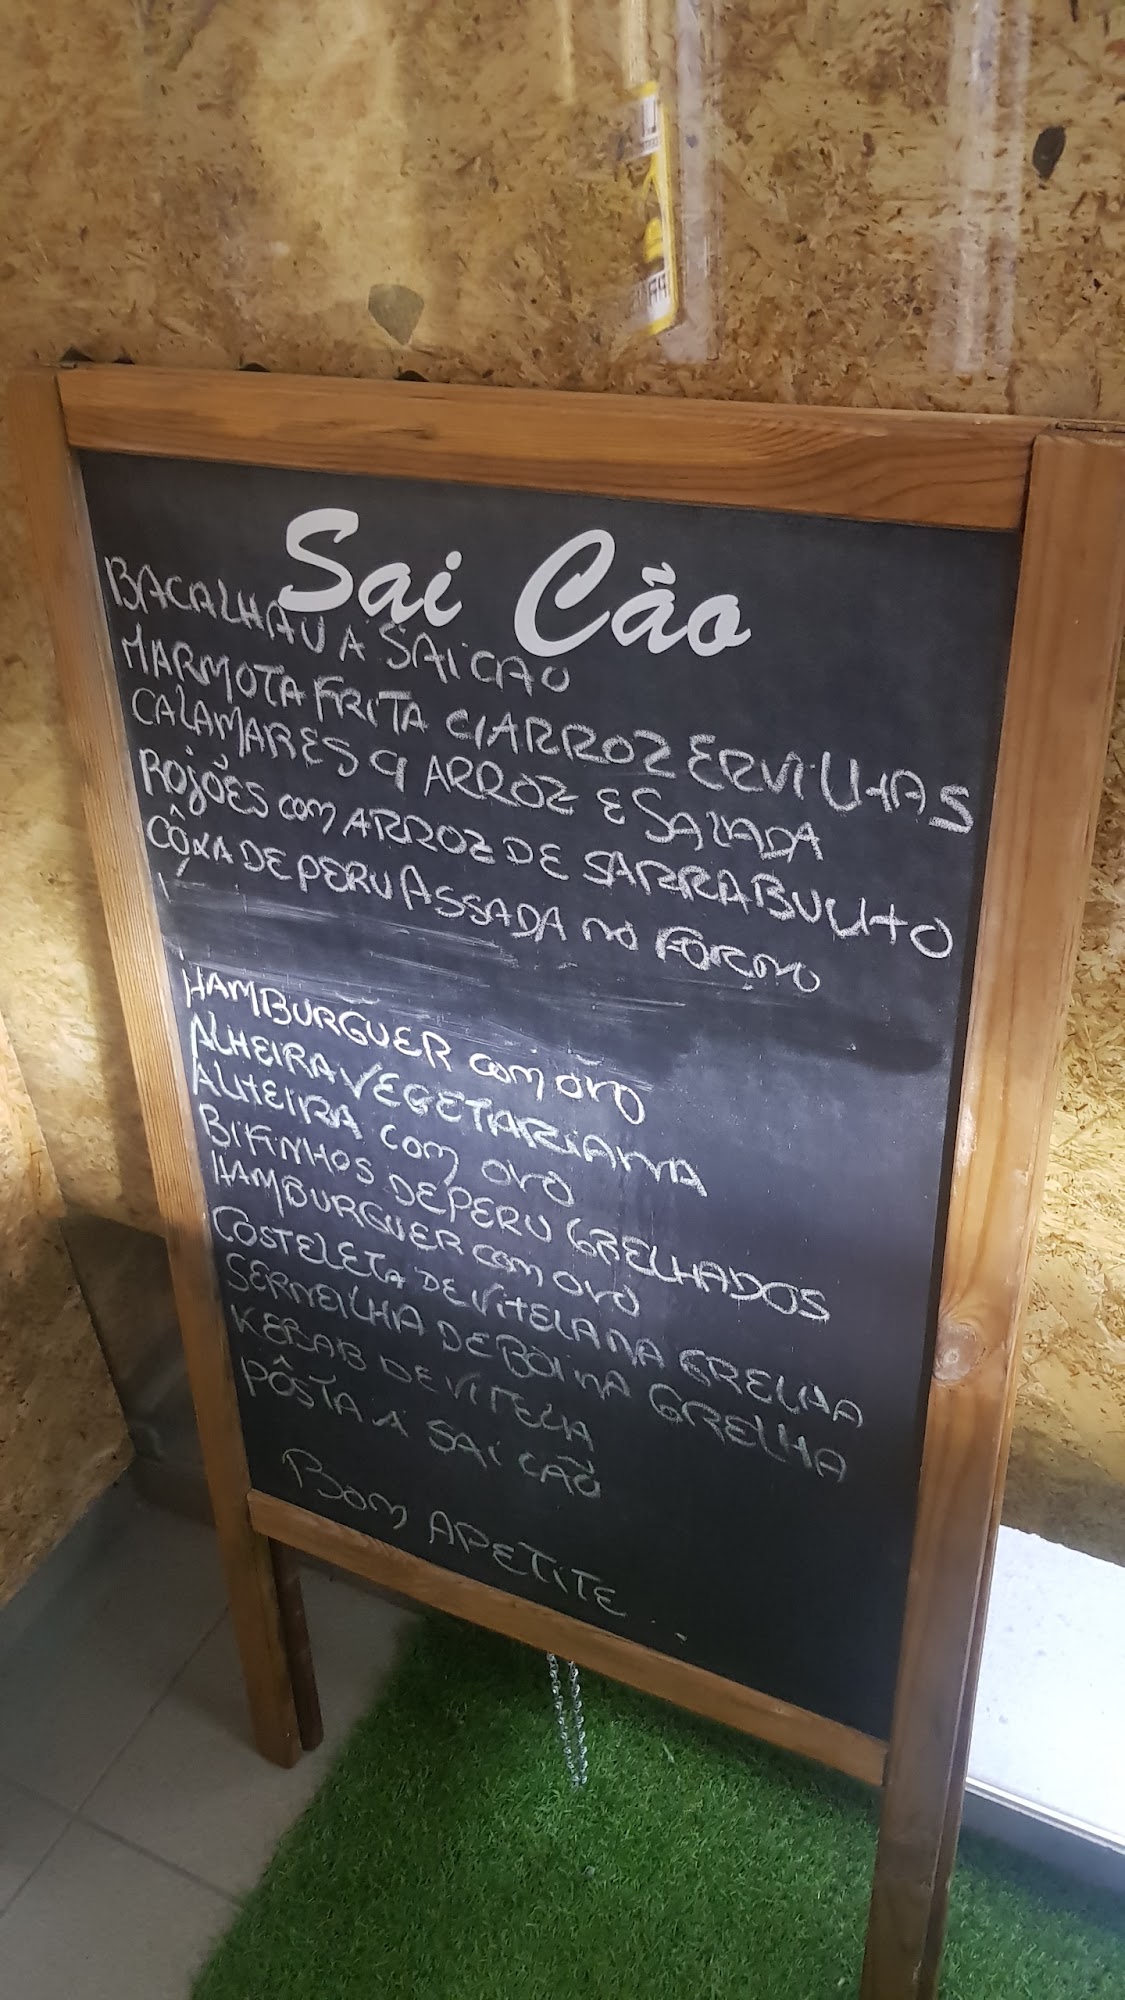 Sai Cão
BACALHAU A SAI CAO
MARMOTA FRITA C/ARROZ ERVILHAS
CALAMARES C/ ARROZ E SALADA
ROJÕES COM ARROZ DE SARRABULHO
CÔXA DE PERU ASSADA NO FORNO
HAMBURGUER COM OVO
ALHEIRA VEGETARIANA
ALHEIRA COM OVO
BIFINHOS DE PERU GRELHADOS
HAMBURGUER COM OVO
COSTELETA DE VITELA NA GRELHA
SERNELHA DE BOI NA GRELHA
KEBAB DE VITELA
PÔSTA A SAI CÃO
BOM APETITE...